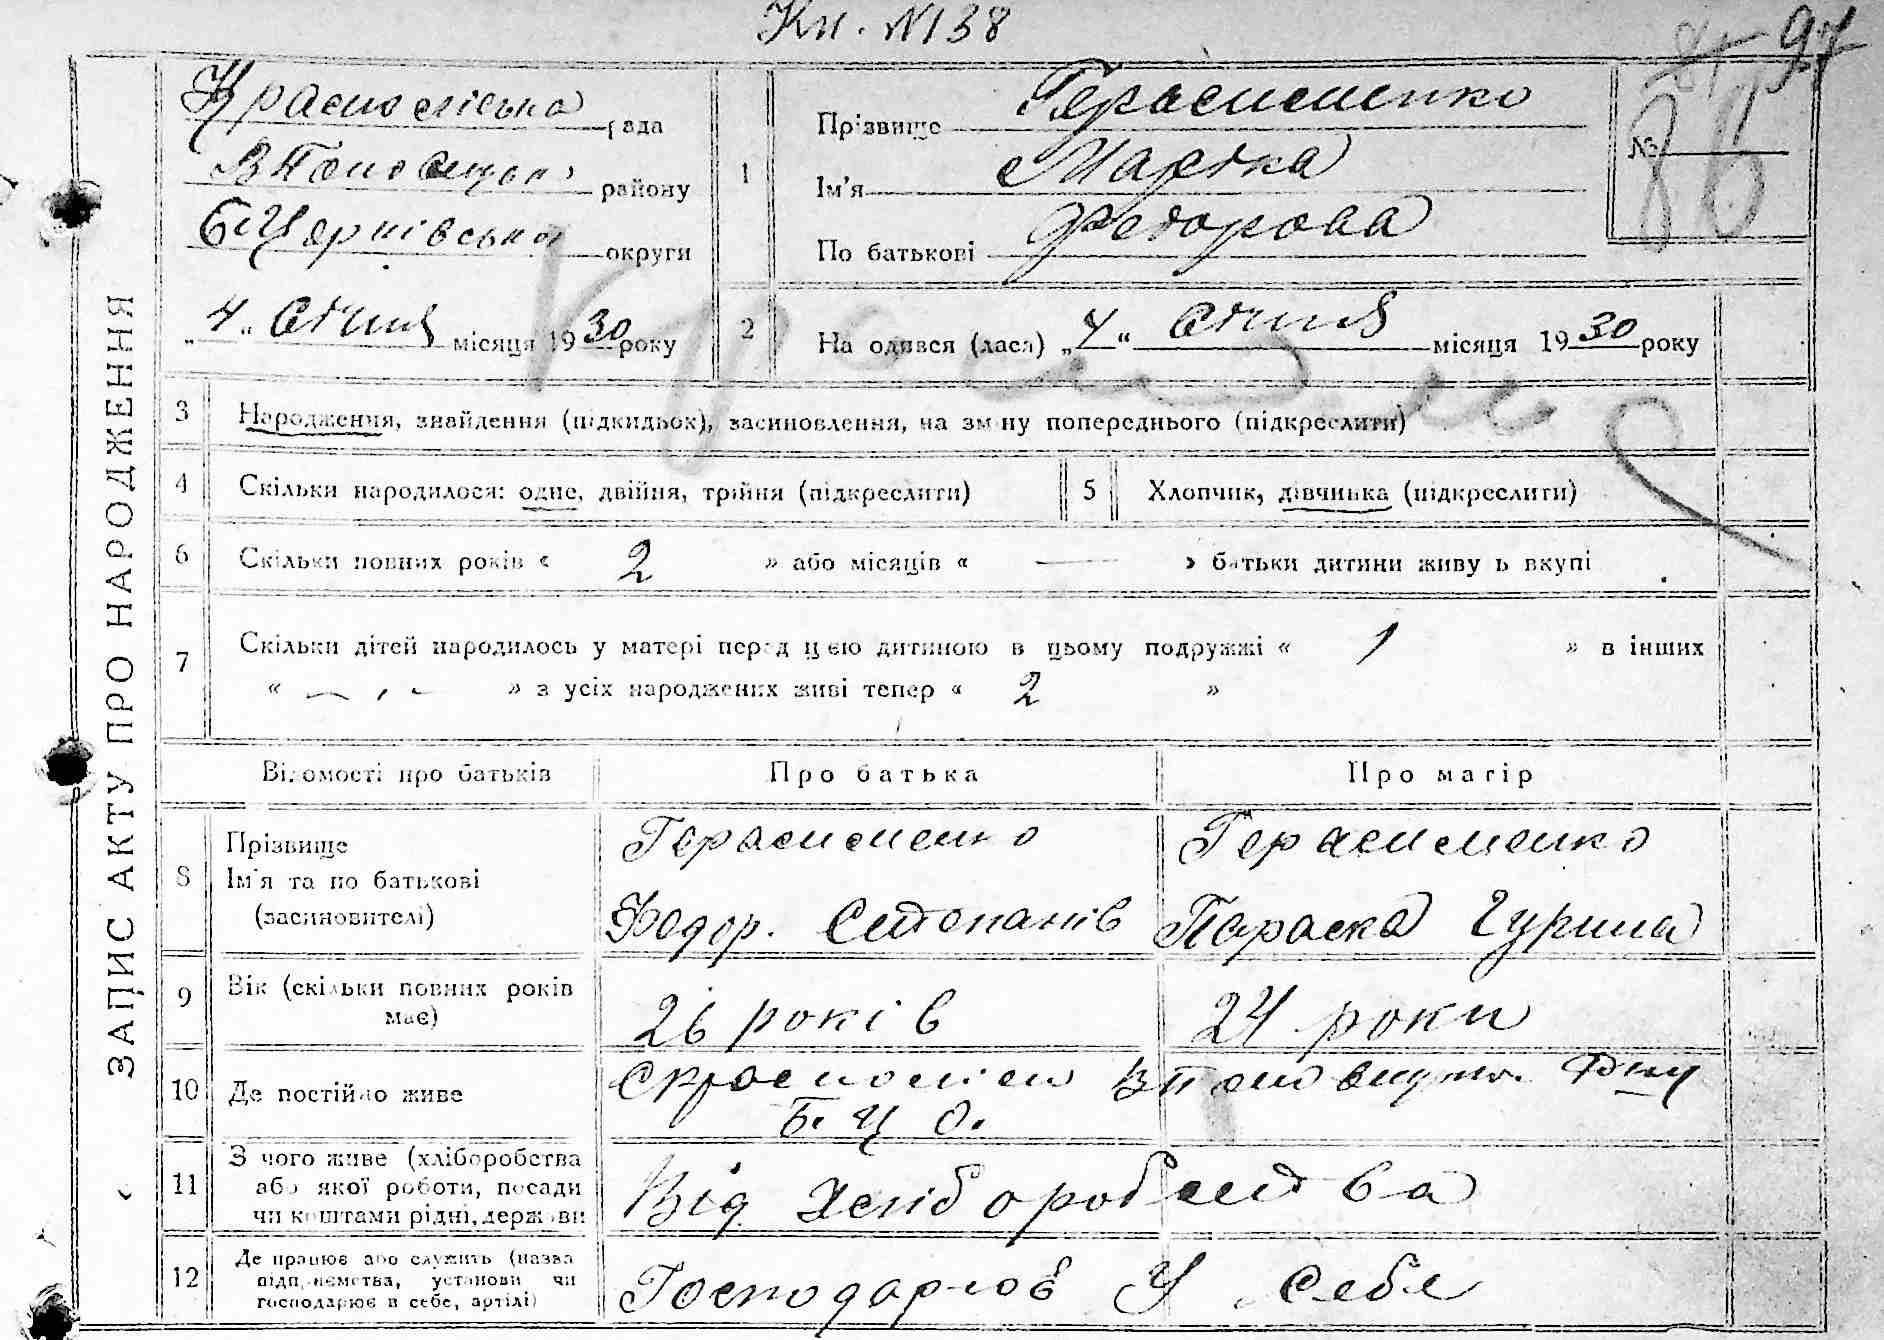 Кн. №138
97
Красноліська рада
району
Б Церківська округи
„4" Січня місяця 1930 року
1
Прізвище Герасименко
Ім'я Мартка
По батькові Федорова
№ 86
2
На одився (лася) „4" Січня місяця 1930 року
ЗАПИС АКТУ ПРО НАРОДЖЕННЯ
3 Народження, знайдення (підкидьок), засиновлення, на зміну попереднього (підкреслити)
4 Скільки народилося: одне, двійня, трійня (підкреслити)
5 Хлопчик, дівчинка (підкреслити)
6 Скільки повних років « 2 » або місяців « — » батьки дитини живуть вкупі
7 Скільки дітей народилось у матері перед цією дитиною в цьому подружжі « 1 » в інших
« — » з усіх народжених живі тепер « 2 »
Відомості про батьків
Про батька
Про матір
8 Прізвище
Ім'я та по батькові
(засиновителі)
Герасименко
Федор. Степанів
Герасименко
Параска Гурина
9 Вік (скільки повних років
має)
26 років
24 роки
10 Де постійно живе
Б. Ц О.
11 З чого живе (хліборобства
або якої роботи, посади
чи коштами рідні, держави
Від Хліборобства
12 Де працює або служить (назва
підприємства, установи чи
господарює в себе, артілі)
Господарює У Себе